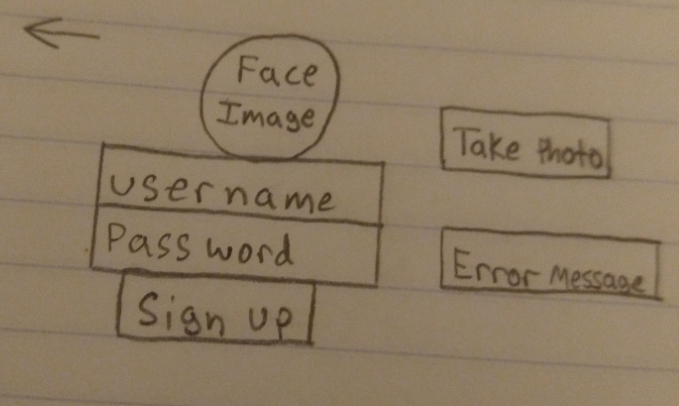 Face
Image
Take Photo
username
Password
Error Message
Sign up